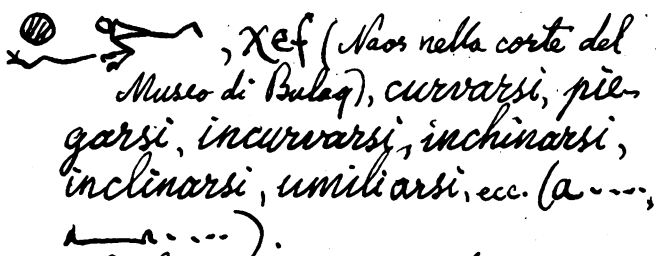 , χef (Naos nella corte del
Museo di Bulaq), curvarsi, pie-
garsi, incurvarsi, inchinarsi,
inclinarsi, umiliarsi, ecc. (a ....,
....).